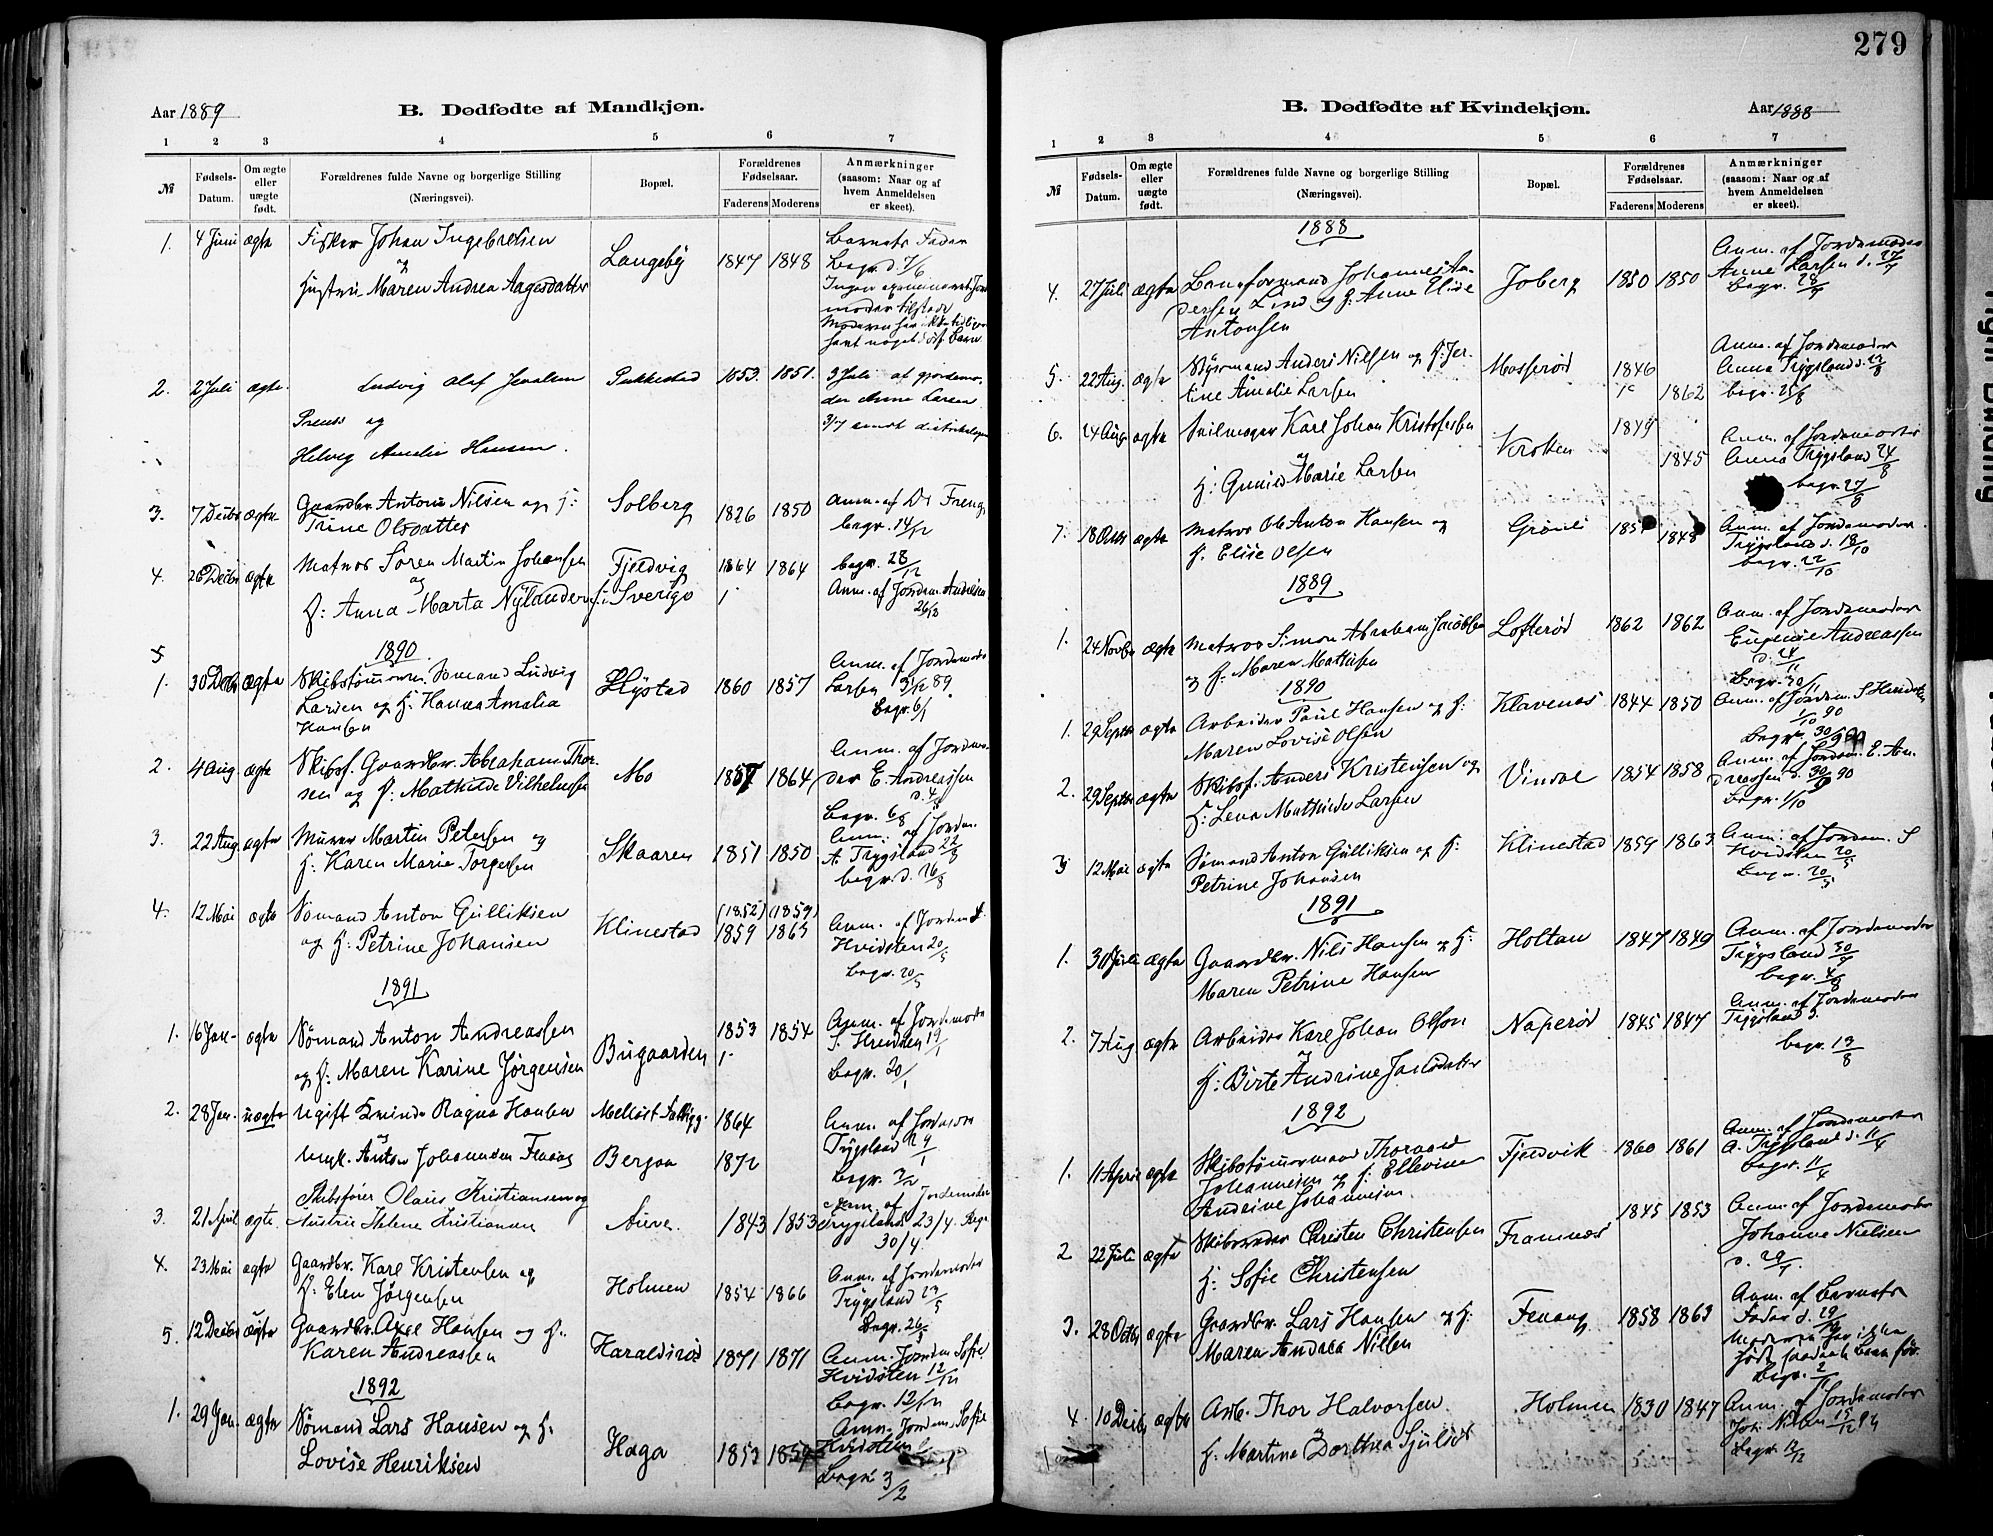 279
Aar 1889
B. Dødfødte af Mandkjøn.
1 2 3 4 5 6 7
№
Fødsels-Datum.
Om ægte eller uægte født.
Forældrenes fulde Navne og borgerlige Stilling (Næringsvei).
Bopæl.
Forældrenes Fødselsaar.
Faderens Moderens
Anmærkninger (saasom: Naar og af hvem Anmeldelsen er skeet).
1. 4 Juni ægte Fisker Johan Ingebretsen Langeby 1847 1848 Barnets Fader
og
Hustru Maren Andrea Aagesdatter
Begr. d. 7/6
2. 2 Juli ægte Ludvig Olaf Pukkestad 1853 1851. 3 Juli af gjordemo-
der Anne Larsen
og
Helvig Amalie Hansen.
3. 7 Decbr ægte Gaardbr. Anton Nilsen og H: Solberg 1826 1850 Anm. af Dr.
Trine Olsdatter
begr. 14/12
4. 26 Decbr ægte Matros Søren Martin Johansen Fjeldvig 1864 1864 begr. 28/12
og
H: Anna Marta Nylander i Sverige Anm. af Jordem. Andresen
5 1890
1. 30 Decbr ægte Skibstømmerm. Sømand Ludvig Hystad 1860 1857 Anm. af Jordemoder
Larsen og H: Hanna Amalia
Hansen
Larsen 31/12 89
Begr. 6/1
2. 4 Aug ægte Skibsf. Gaardbr. Abraham Thor- Mo 1857 1864 Anm. af Jordemo-
sen og H: Mathilde Vilhelmsen
der E. Andreassen
Begr. 6/8
3. 22 Aug ægte Murer Martin Petersen og Skaaren 1851 1850 Anm. af Jordem.
H: Karen Marie Torgersen
A. Trygsland 22/8
begr. d. 26/8
4. 12 Mai ægte Sømand Anton Gulliksen Klinestad (1852) (1859)
1859 1863
og H: Petrine Johansen
Anm. af Jordem. S.
Hvidsten 20/5
begr. 20/5
1891
1. 16 Jan. ægte Sømand Anton Andreassen Bugaarden 1853 1854 Anm. af Jordemoder
og H: Maren Karine Jørgensen
S. Hvidsten 19/1
Begr. 20/1
2. 28 Jan. uægte Ugift Kvinde Ragna Hansen 1864 Anm. af Jordem.
og
Ungk. Anton Johannesen Fevang Bergan 1872
Trygsland
Begr. 3/2
3. 21 April ægte. Skibsfører Olaus Kristiansen og
Hustru Helene Kristiansen Auve. 1843 1853
Anm. af Jordemoder
Trygsland 23/4. Begr
30/4.
4. 23 Mai ægte Gaardbr. Karl Kristensen og Holmen 1854 1866
H: Elen Jørgensen
Anm. af Jordemoder
Trygsland 23/5
Begr. 26/5
5. 12 Decbr ægte Gaardbr. Axel Hansen og H: Haraldsrød 1871 1871
Karen Andreassen
Anm. Jordem Sofie
Hvidsten 12/12
Begr. 12/12
1892
1. 29 Jan. ægte Sømand Lars Hansen og H. Haga 1853 1859
Lovise Henriksen
Anm. Jordem. Sofie
Hvidsten
Begr. 3/2
B. Dødfødte af Kvindekjøn.
Aar 1888
1 2 3 4 5 6 7
№
Fødsels-Datum.
Om ægte eller uægte født.
Forældrenes fulde Navne og borgerlige Stilling (Næringsvei).
Bopæl.
Forældrenes Fødselsaar.
Faderens Moderens
Anmærkninger (saasom: Naar og af hvem Anmeldelsen er skeet).
1888
4. 27 Juli ægte Baneformand Johannes An- Joberg 1850 1850
dersen Lind og H: Anne Elise
Antonsen
Anm. af Jordemoder
Anne Larsen d. 27/7
begr. 28/7
5. 22 Aug. ægte Styrmand Anders Nilsen og H: Ber- Mosserød 1846 1862
tine Amalie Larsen
Anm. af Jordemoder
Anna Trygsland d. 22/8
begr. 25/8
6. 24 Aug ægte Seilmager Karl Johan Kristofersen Krokken 1849 1845
og
H: Gunild Marie Larsen
Anm. af Jordemoder
Anna Trygsland 24/8
begr. 27/8
7. 18 Octbr ægte Matros Ole Anton Hansen og Grønli 1848
H. Elise Olsen
Anm. af Jordemoder
Trygsland d. 18/10
begr. 22/10
1889
1. 24 Novbr ægte Matros Simon Abraham Jacobsen Lofterød 1862 1862
og H. Maren Mathisen
Anm. af Jordemoder
Eugenie Andreassen
d. 24/11
Begr. 30/11
1890
1. 29 Septbr ægte Arbeider Paul Hansen og H: Klavenes 1844 1850
Maren Lovise Olsen
Anm. af Jordem. S Hvidsten
1/10 90
2. 29 Septbr ægte Skibsf. Anders Kristensen og Vindal 1854 1858
H: Lena Mathilde Larsen
Anm. af Jordem. E. An-
dreassen d. 30/9 90
Begr. 1/10
3 12 Mai ægte Sømand Anton Gulliksen og H: Klinestad 1859 1863
Petrine Johansen
Anm. af Jordem. S
Hvidsten 20/5
Begr. 20/5
1891
1. 30 Juli ægte Gaardbr. Nils Hansen og H: Holtan 1847 1849
Maren Petrine Hansen
Anm. af Jordemoder
Trygsland 30/7
begr. 4/8
2. 7 Aug ægte Arbeider Karl Johan Olsen Naperød 1845 1847
og
H: Birte Andrine
Anm. af Jordemoder
Trygsland d.
begr. 13/8
1892
1. 11 April ægte Skibstømmermand Thorvald Fjeldvik 1860 1861
Johannesen og H: Ellevine
Andrine Johannesen
Anm. af Jordemoder
A. Trygsland d. 11/4
Begr. 11/4
2 22 Juli ægte Skibsreder Christen Christensen Framnæs 1845 1853
H: Sofie Christensen
Anm. af Jordemoder
Johanne Nielsen
3. 28 Octbr ægte Gaardbr. Lars Hansen og H: Fevang 1858 1863
Maren Andrea Nilsen
Anm. af Barnets
Fader d. 29/10
Moderen har ikke
født saadant Barn før.
4 10 Decbr ægte Arb. Thor Halvorsen Holmen 1830 1847
og
H. Martina Dorthea
Anm. af Jordemoder
Joh. Nilsen
Begr. 12/12